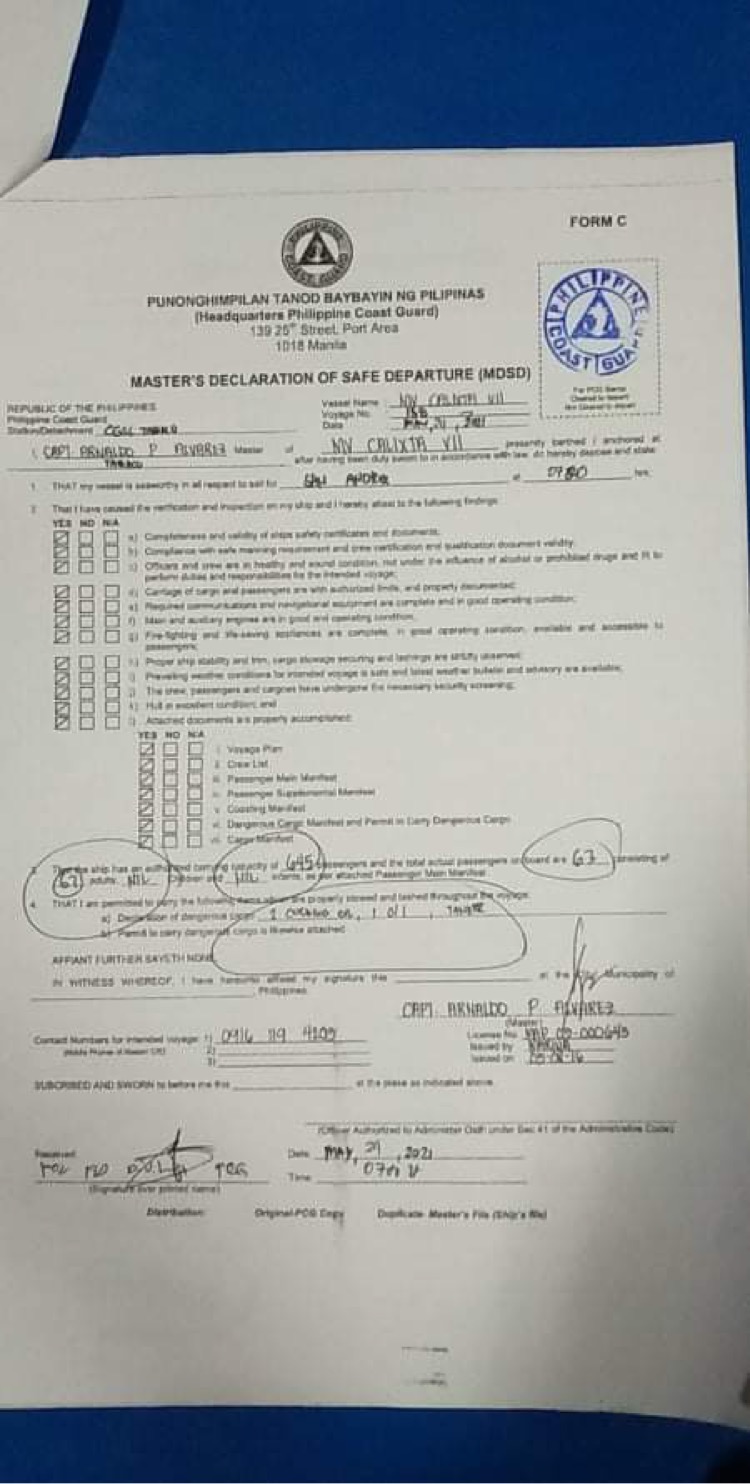 FORM C
PHILIPPINE COAST GUARD
PUNONGHIMPILAN TANOD BAYBAYIN NG PILIPINAS
(Headquarters Philippine Coast Guard)
139 25th Street, Port Area
1018 Manila
PHILIPPINE COAST GUARD
MASTER'S DECLARATION OF SAFE DEPARTURE (MDSD)
REPUBLIC OF THE PHILIPPINES
Philippine Coast Guard
Station/Detachment
Vessel Name MV CALIXTA VII
Voyage No.
Date MAY, 2021
I, CAPT. ARNALDO P ALVAREZ Master of MV CALIXTA VII presently berthed / anchored at
after having been duly sworn to in accordance with law, do hereby depose and state:
1. THAT my vessel is seaworthy in all respect to sail for at hrs;
2. That I have caused the verification and inspection on my ship and I hereby attest to the following findings:
YES NO N/A
a) Completeness and validity of ships safety certificates and documents;
b) Compliance with safe manning requirement and crew certification and qualification document validity;
c) Officers and crew are in healthy and sound condition, not under the influence of alcohol or prohibited drugs and fit to
perform duties and responsibilities for the intended voyage;
d) Carriage of cargo and passengers are with authorized limits, and properly documented;
e) Required communications and navigational equipment are complete and in good operating condition;
f) Main and auxiliary engines are in good and operating condition;
g) Fire-fighting and life-saving appliances are complete, in good operating condition, available and accessible to
passengers;
h) Proper ship stability and trim, cargo stowage securing and lashings are strictly observed;
i) Prevailing weather conditions for intended voyage is safe and latest weather bulletin and advisory are available;
j) The crew, passengers and cargoes have undergone the necessary security screening;
k) Hull in excellent condition; and
l) Attached documents are properly accomplished:
YES NO N/A
i. Voyage Plan
ii. Crew List
iii. Passenger Main Manifest
iv. Passenger Supplemental Manifest
v. Coasting Manifest
vi. Dangerous Cargo Manifest and Permit to Carry Dangerous Cargo
vii. Cargo Manifest
3. ship has an authorized carrying capacity of 645 passengers and the total actual passengers on board are 63 consisting of
adults, NIL children and NIL infants, as per attached Passenger Main Manifest.
4. THAT I am permitted to carry the following items which are properly stowed and lashed throughout the voyage:
a) Declaration of dangerous cargo
b) Permit to carry dangerous cargo is likewise attached
AFFIANT FURTHER SAYETH NONE.
IN WITNESS WHEREOF, I have hereunto affixed my signature this at the Municipality of
, Philippines.
CAPT. ARNALDO P ALVAREZ
(Master)
Contact Numbers for intended voyage: 1) 0916 119 4105
2)
3)
License No.
Issued by MARINA
Issued on
SUBCRIBED AND SWORN to before me this at the place as indicated above.
(Officer Authorized to Administer Oath under Sec 41 of the Administrative Code)
Received:
(Signature over printed name)
Date MAY, , 2021
Time
Distribution: Original-PCG Copy Duplicate- Master's File (Ship's file)